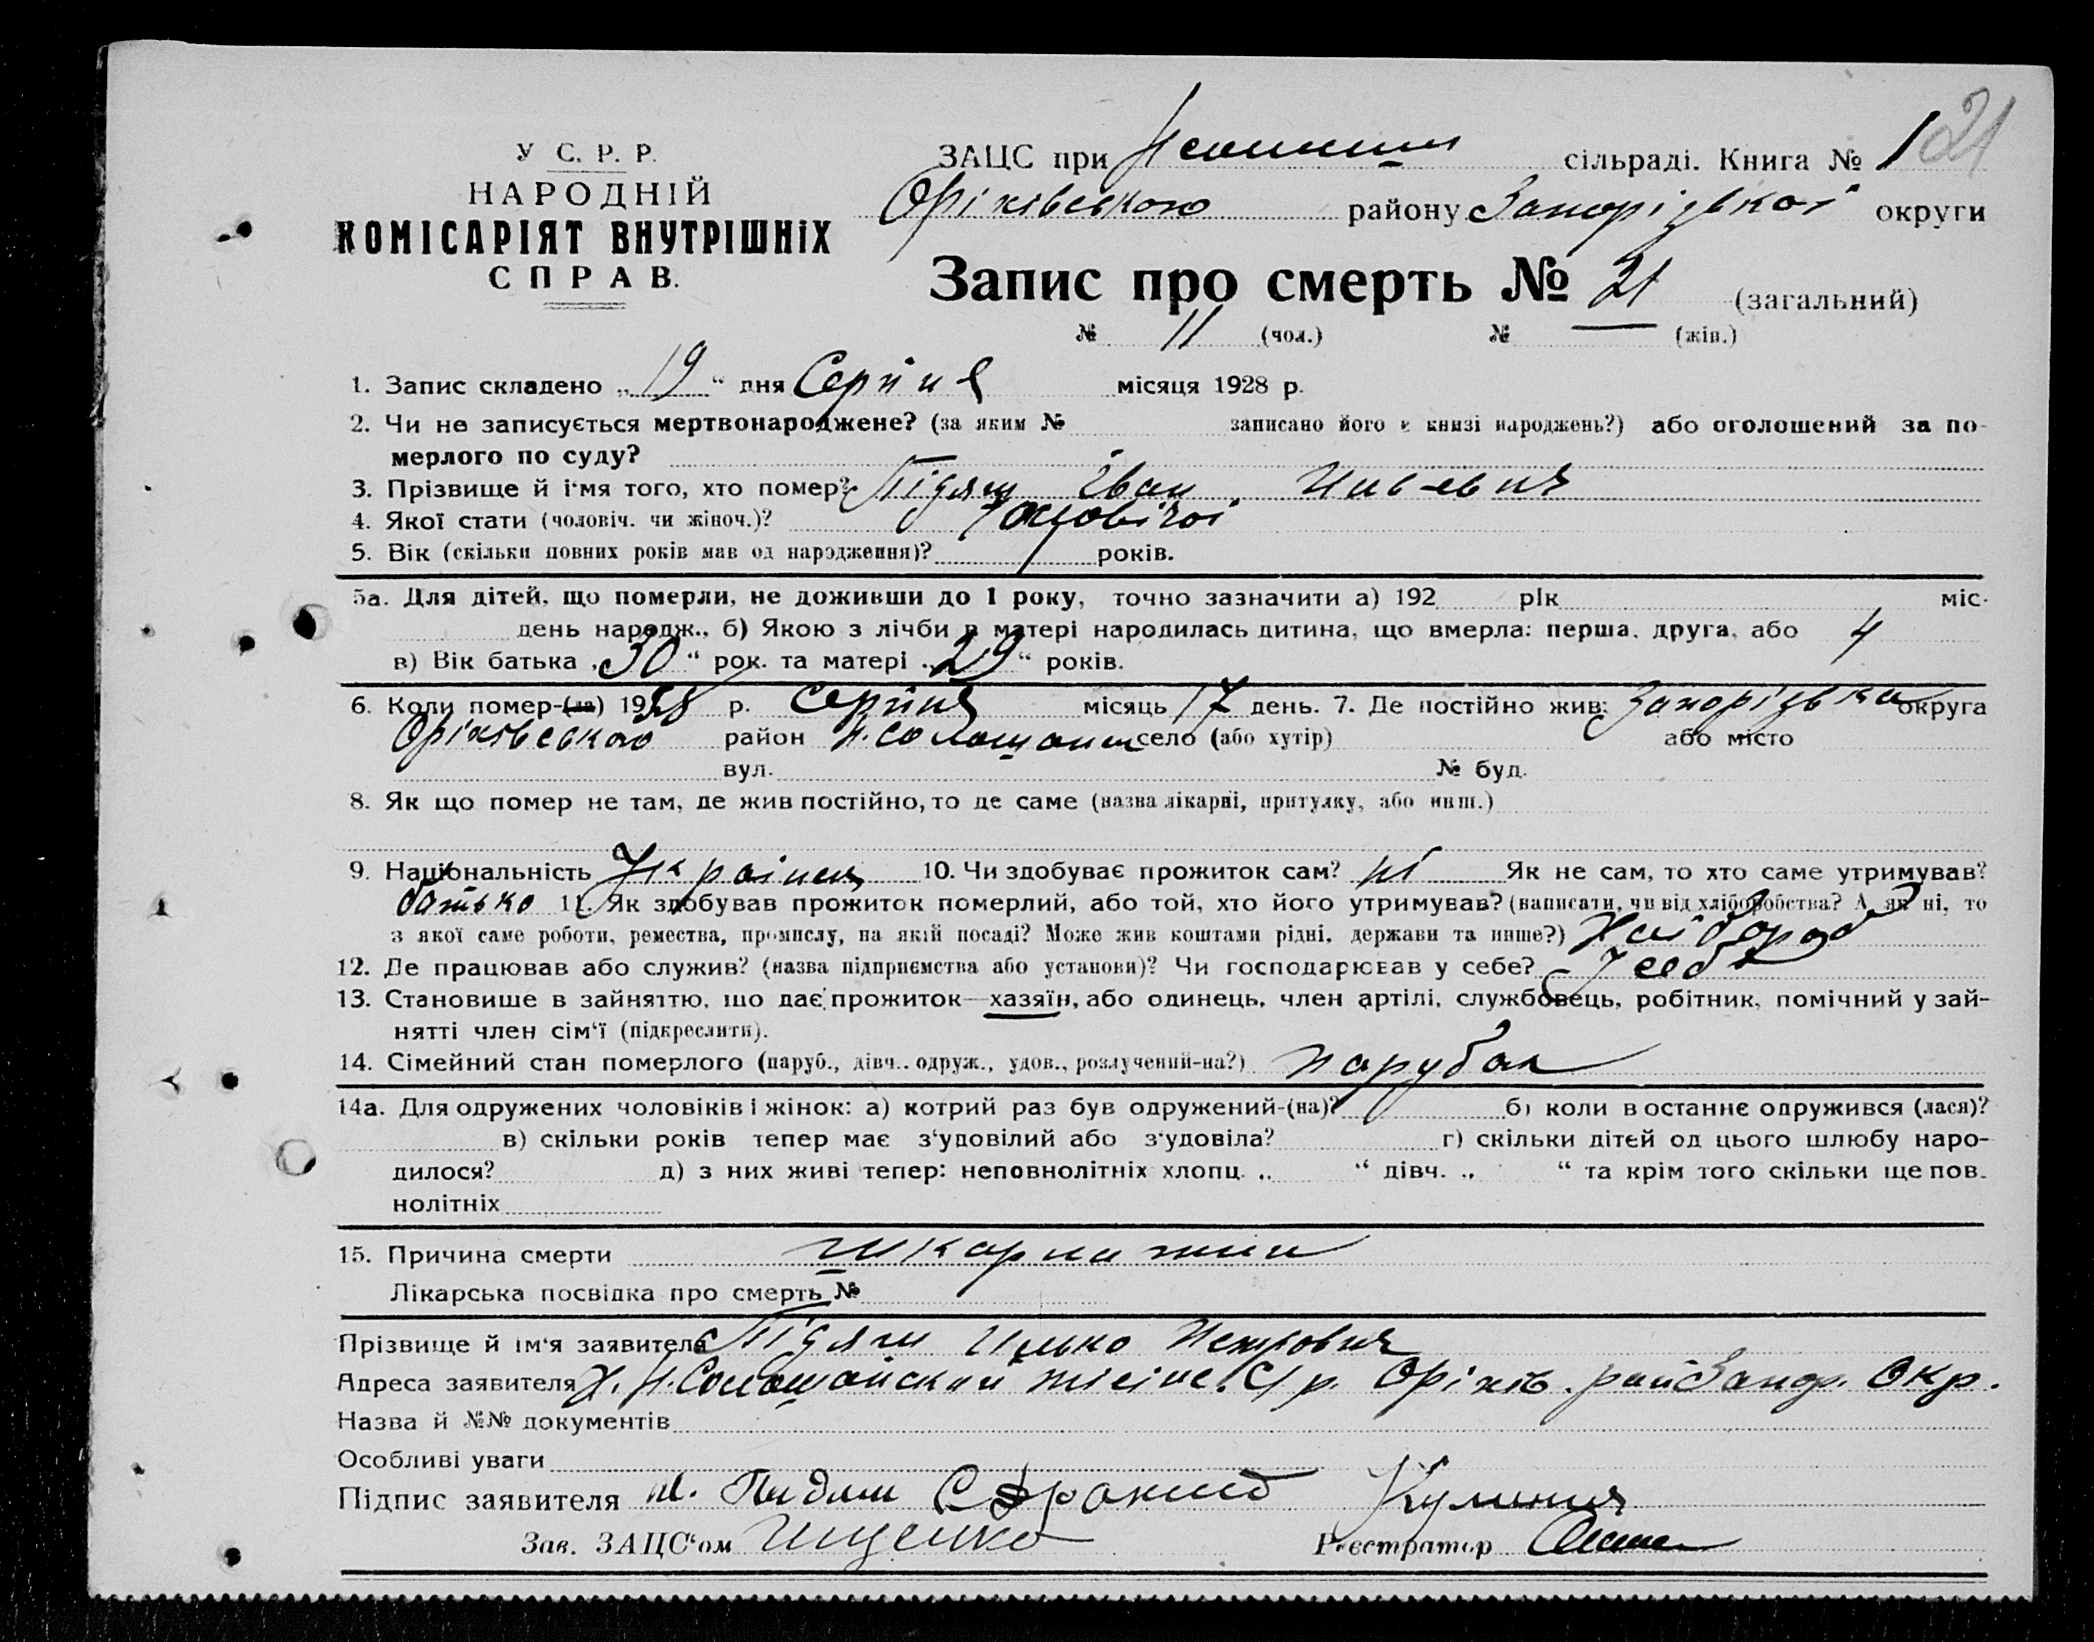 У С. Р. Р.
НАРОДНІЙ
КОМІСАРІЯТ ВНУТРІШНІХ
СПРАВ.
ЗАЦС при сільраді. Книга № 1 21
Оріхівського району Запорізької округи
Запис про смерть № 21 (загальний)
№ 11 (чол.) № — (жін.)
1. Запис складено „19“ дня Серпня місяця 1928 р.
2. Чи не записується мертвонароджене? (за яким № записано його в книзі народжень?) або оголошений за по-
мерлого по суду?
3. Прізвище й і'мя того, хто помер? Підяш Іван
4. Якої стати (чоловіч. чи жіноч.)? Чоловічої
5. Вік (скільки повних років мав од народження)? років.
5а. Для дітей, що померли, не доживши до 1 року, точно зазначити а) 192 рік міс.
день народж., б) Якою з лічби в матері народилась дитина, що вмерла: перша, друга, або 4
в) Вік батька „30“ рок. та матері „29“ років.
6. Коли помер-(ла) 1928 р. Серпня місяць 17 день. 7. Де постійно жив: Запорізька округа
Оріхівського район село (або хутір) або місто
вул. № буд.
8. Як що помер не там, де жив постійно, то де саме (назва лікарні, притулку, або инш.)
9. Національність Українец 10. Чи здобуває прожиток сам? ні Як не сам, то хто саме утримував?
батько 11. Як здобував прожиток померлий, або той, хто його утримував? (написати, чи від хліборобства? А як ні, то
з якої саме роботи, ремества, промислу, на якій посаді? Може жив коштами рідні, держави та инше?) Хлібороб
12. Де працював або служив? (назва підприємства або установи)? Чи господарював у себе? У себе
13. Становише в зайняттю, що дає прожиток—хазяїн, або одинець, член артілі, службовець, робітник, помічний у зай-
нятті член сім'ї (підкреслити).
14. Сімейний стан померлого (паруб., дівч., одруж., удов., розлучений-на?) парубок
14а. Для одружених чоловіків і жінок: а) котрий раз був одружений-(на)? б) коли в останнє одружився (лася)?
в) скільки років тепер має з'удовілий або з'удовіла? г) скільки дітей од цього шлюбу наро-
дилося? д) з них живі тепер: неповнолітніх хлопц. „ “ дівч. „ “ та крім того скільки ще пов-
нолітніх
15. Причина смерти шкарлатин
Лікарська посвідка про смерть №
Прізвище й ім'я заявителя Підяш Илько Петрович
Адреса заявителя С/р. Оріхів. рай Запор. Окр.
Назва й №№ документів
Особливі уваги
Підпис заявителя
Зав. ЗАЦС'ом Ищенко Реєстратор